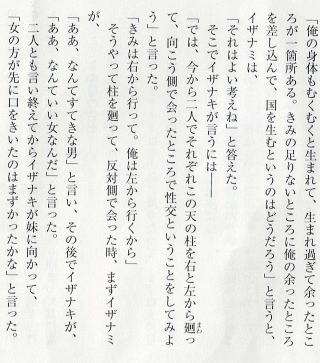 「俺の身体もむくむくと生まれて、生まれ過ぎて余ったとこ
ろが一箇所ある。きみの足りないところに俺の余ったところ
を差し込んで、国を生むというのはどうだろう」と言うと、
イザナミは、
「それはよい考えね」と答えた。
そこでイザナギが言うには――
「では、今から二人でそれぞれこの天の柱を右と左から廻っ
て、向こう側で会ったところで性交ということをしてみよ
う」と言った。
「きみは右から行って。俺は左から行くから」
そうやって柱を廻って、反対側で会った時、まずイザナミ
が、
「ああ、なんてすてきな男」と言い、その後でイザナギが、
「ああ、なんていい女なんだ」と言った。
二人とも言い終えてからイザナギが妹に向かって、
「女の方が先に口をきいたのはまずかったかな」と言った。
まわ